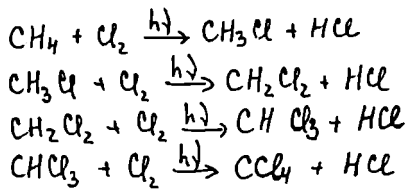 CH₄ + Cl₂ hν→ CH₃Cl + HCl
CH₃Cl + Cl₂ hν→ CH₂Cl₂ + HCl
CH₂Cl₂ + Cl₂ hν→ CHCl₃ + HCl
CHCl₃ + Cl₂ hν→ CCl₄ + HCl